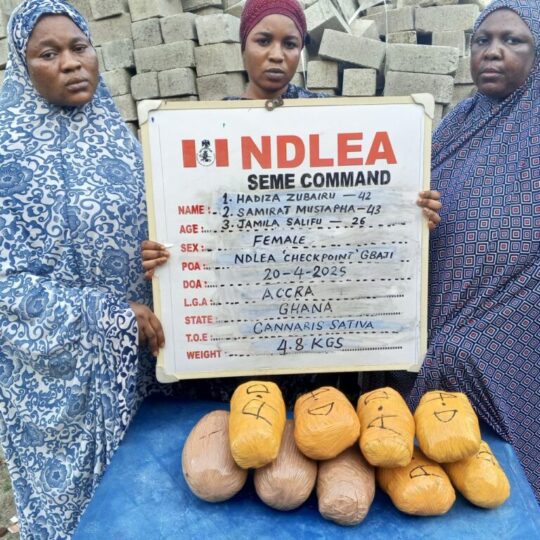 NDLEA
SEME COMMAND
1. HADIZA ZUBAIRU — 42
NAME: 2. SAMIRAT MUSTAPHA - 43
AGE: 3. JAMILA SALIFU — 26
SEX: FEMALE
POA: NDLEA 'CHECKPOINT' GBAJI
DOA: 20-4-2025
L.G.A: ACCRA
STATE: GHANA
T.O.E: CANNARIS SATIVA
WEIGHT: 4.8 KGS
A.D
D.A
A.D
D.A